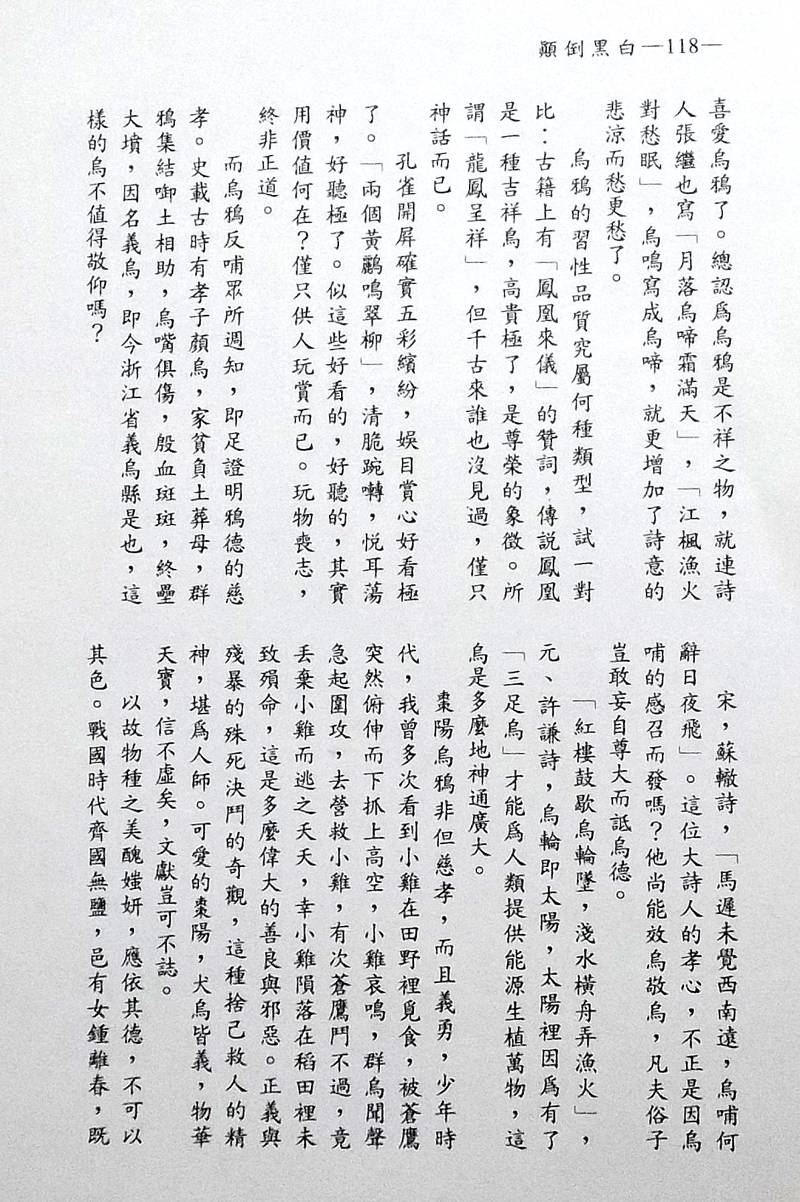 顛倒黑白—118—
喜愛烏鴉了。總認爲烏鴉是不祥之物，就連詩
人張繼也寫「月落烏啼霜滿天」，「江楓漁火
對愁眠」，烏鳴寫成烏啼，就更增加了詩意的
悲涼而愁更愁了。
烏鴉的習性品質究屬何種類型，試一對
比：古籍上有「鳳凰來儀」的贊詞，傳說鳳凰
是一種吉祥鳥，高貴極了，是尊榮的象徵。所
謂「龍鳳呈祥」，但千古來誰也沒見過，僅只
神話而已。
孔雀開屏確實五彩繽紛，娛目賞心好看極
了。「兩個黃鸝鳴翠柳」，清脆踠囀，悅耳蕩
神，好聽極了。似這些好看的，好聽的，其實
用價值何在？僅只供人玩賞而已。玩物喪志，
終非正道。
而烏鴉反哺眾所週知，即足證明鴉德的慈
孝。史載古時有孝子顏烏，家貧負土葬母，群
鴉集結啣土相助，烏嘴俱傷，殷血斑斑，終壘
大墳，因名義烏，即今浙江省義烏縣是也，這
樣的烏不值得敬仰嗎？
宋，蘇轍詩，「馬遲未覺西南遠，烏哺何
辭日夜飛」。這位大詩人的孝心，不正是因烏
哺的感召而發嗎？他尚能效烏敬烏，凡夫俗子
豈敢妄自尊大而詆烏德。
「紅樓鼓歇烏輪墜，淺水橫舟弄漁火」，
元、許謙詩，烏輪即太陽，太陽裡因爲有了
「三足烏」才能爲人類提供能源生植萬物，這
烏是多麼地神通廣大。
棗陽烏鴉非但慈孝，而且義勇，少年時
代，我曾多次看到小雞在田野裡覓食，被蒼鷹
突然俯伸而下抓上高空，小雞哀鳴，群烏聞聲
急起圍攻，去營救小雞，有次蒼鷹鬥不過，竟
丟棄小雞而逃之夭夭，幸小雞隕落在稻田裡未
致殞命，這是多麼偉大的善良與邪惡。正義與
殘暴的殊死決鬥的奇觀，這種捨己救人的精
神，堪爲人師。可愛的棗陽，犬烏皆義，物華
天寶，信不虛矣，文獻豈可不誌。
以故物種之美醜媸妍，應依其德，不可以
其色。戰國時代齊國無鹽，邑有女鍾離春，既